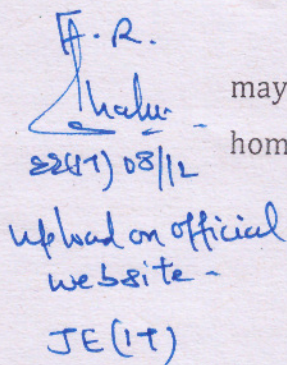 A.R.
may
hom
08/12
upload on official
website -
JE(IT)